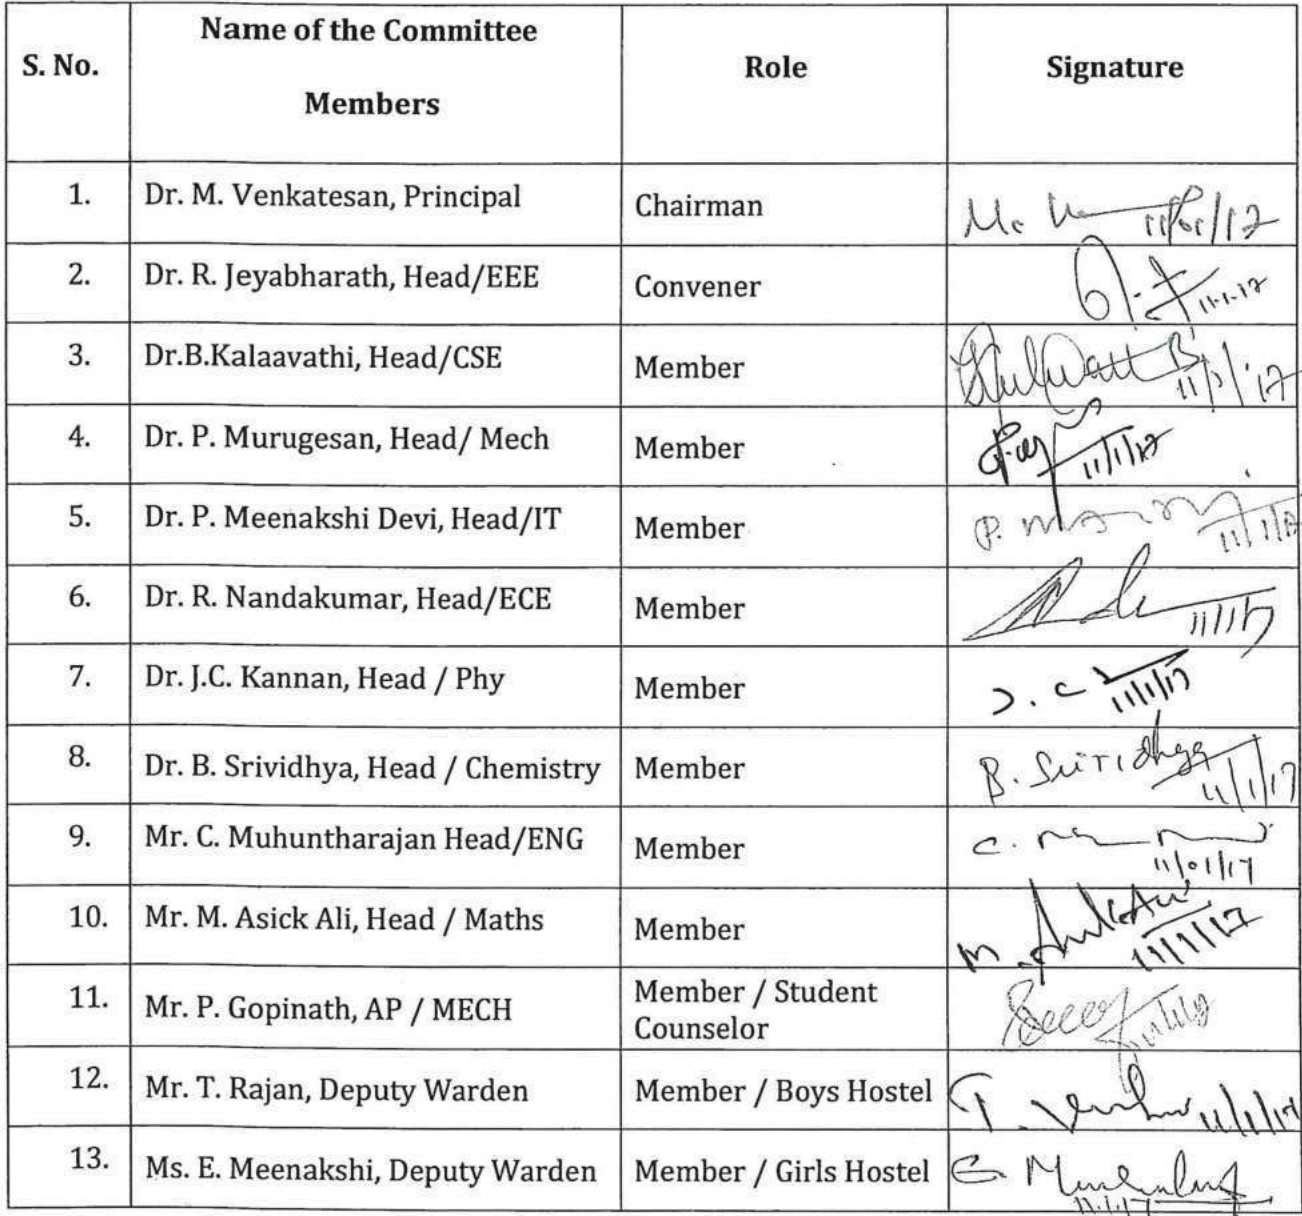 S. No. Name of the Committee Members Role Signature
1. Dr. M. Venkatesan, Principal Chairman 11/01/17
2. Dr. R. Jeyabharath, Head/EEE Convener 11.1.17
3. Dr.B.Kalaavathi, Head/CSE Member 11/1/17
4. Dr. P. Murugesan, Head/ Mech Member 11/1/17
5. Dr. P. Meenakshi Devi, Head/IT Member P. 11/1/17
6. Dr. R. Nandakumar, Head/ECE Member 11/1/17
7. Dr. J.C. Kannan, Head / Phy Member J. C 11/1/17
8. Dr. B. Srividhya, Head / Chemistry Member B. Srividhya 11/1/17
9. Mr. C. Muhuntharajan Head/ENG Member C. 11/01/17
10. Mr. M. Asick Ali, Head / Maths Member M. 11/1/17
11. Mr. P. Gopinath, AP / MECH Member / Student
Counselor
12. Mr. T. Rajan, Deputy Warden Member / Boys Hostel T. 11/1/17
13. Ms. E. Meenakshi, Deputy Warden Member / Girls Hostel E. 11.1.17